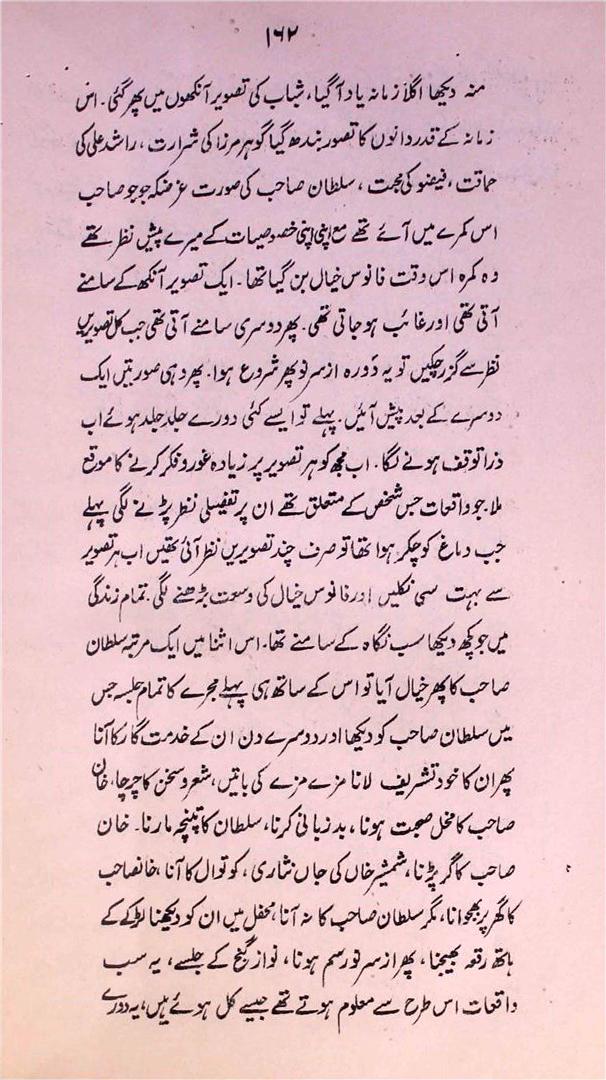 ۱۶۲
منہ دیکھا اگلا زمانہ یاد آگیا، شباب کی تصویر آنکھوں میں پھر گئی۔ اس
زمانہ کے قدردانوں کا تصور بندھ گیا گوہر مرزا کی شرارت، راشد علی کی
حماقت، فیضو کی محبت، سلطان صاحب کی صورت غرضکہ جو جو صاحب
اس کمرے میں آئے تھے مع اپنی اپنی خصوصیات کے میرے پیش نظر تھے
وہ کمرہ اس وقت فانوس خیال بن گیا تھا۔ ایک تصویر آنکھ کے سامنے
آتی تھی اور غائب ہو جاتی تھی۔ پھر دوسری سامنے آتی تھی جب کل تصویریں
نظر سے گزر چکیں تو یہ دَورہ ازسرنو پھر شروع ہوا۔ پھر وہی صورتیں ایک
دوسرے کے بعد پیش آئیں۔ پہلے تو ایسے کئی دورے جلد جلد ہوئے اب
ذرا توقف ہونے لگا۔ اب مجھ کو ہر تصویر پر زیادہ غور و فکر کرنے کا موقع
ملا۔ جو واقعات جس شخص کے متعلق تھے ان پر تفصیلی نظر پڑنے لگی پہلے
جب دماغ کو چکر ہوا تھا تو صرف چند تصویریں نظر آئی تھیں اب ہر تصویر
سے بہت سی نکلیں اور فانوس خیال کی وسعت بڑھنے لگی۔ تمام زندگی
میں جو کچھ دیکھا سب نگاہ کے سامنے تھا۔ اس اثنا میں ایک مرتبہ سلطان
صاحب کا پھر خیال آیا تو اس کے ساتھ ہی پہلے مجرے کا تمام جلسہ جس
میں سلطان صاحب کو دیکھا اور دوسرے دن ان کے خدمت گار کا آنا
پھر ان کا خود تشریف لانا مزے مزے کی باتیں، شعر و سخن کا چرچا، خان
صاحب کا مخل صحبت ہونا، بدزبانی کرنا، سلطان کا تپنچہ مارنا۔ خان
صاحب کا گر پڑنا، شمشیر خاں کی جاں نثاری، کوتوال کا آنا، خانصاحب
کا گھر پر بھجوانا، مگر سلطان صاحب کا نہ آنا، محفل میں ان کو دیکھنا لڑکے کے
ہاتھ رقعہ بھیجنا، پھر ازسرنو رسم ہونا، نواز گنج کے جلسے، یہ سب
واقعات اس طرح سے معلوم ہوتے تھے جیسے کل ہوئے ہیں، یہ دورے